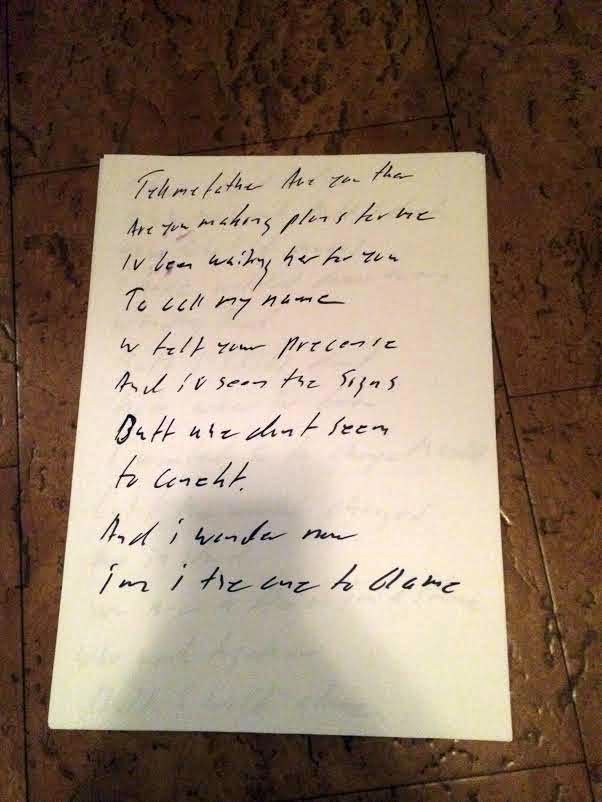 Tell me father Are you ther
Are you making plans for me
Iv been waiting her for you
To call my name
Iv felt your precense
And iv seen the signs
Butt we dont seem
to
And i wonder now
im i the one to blame